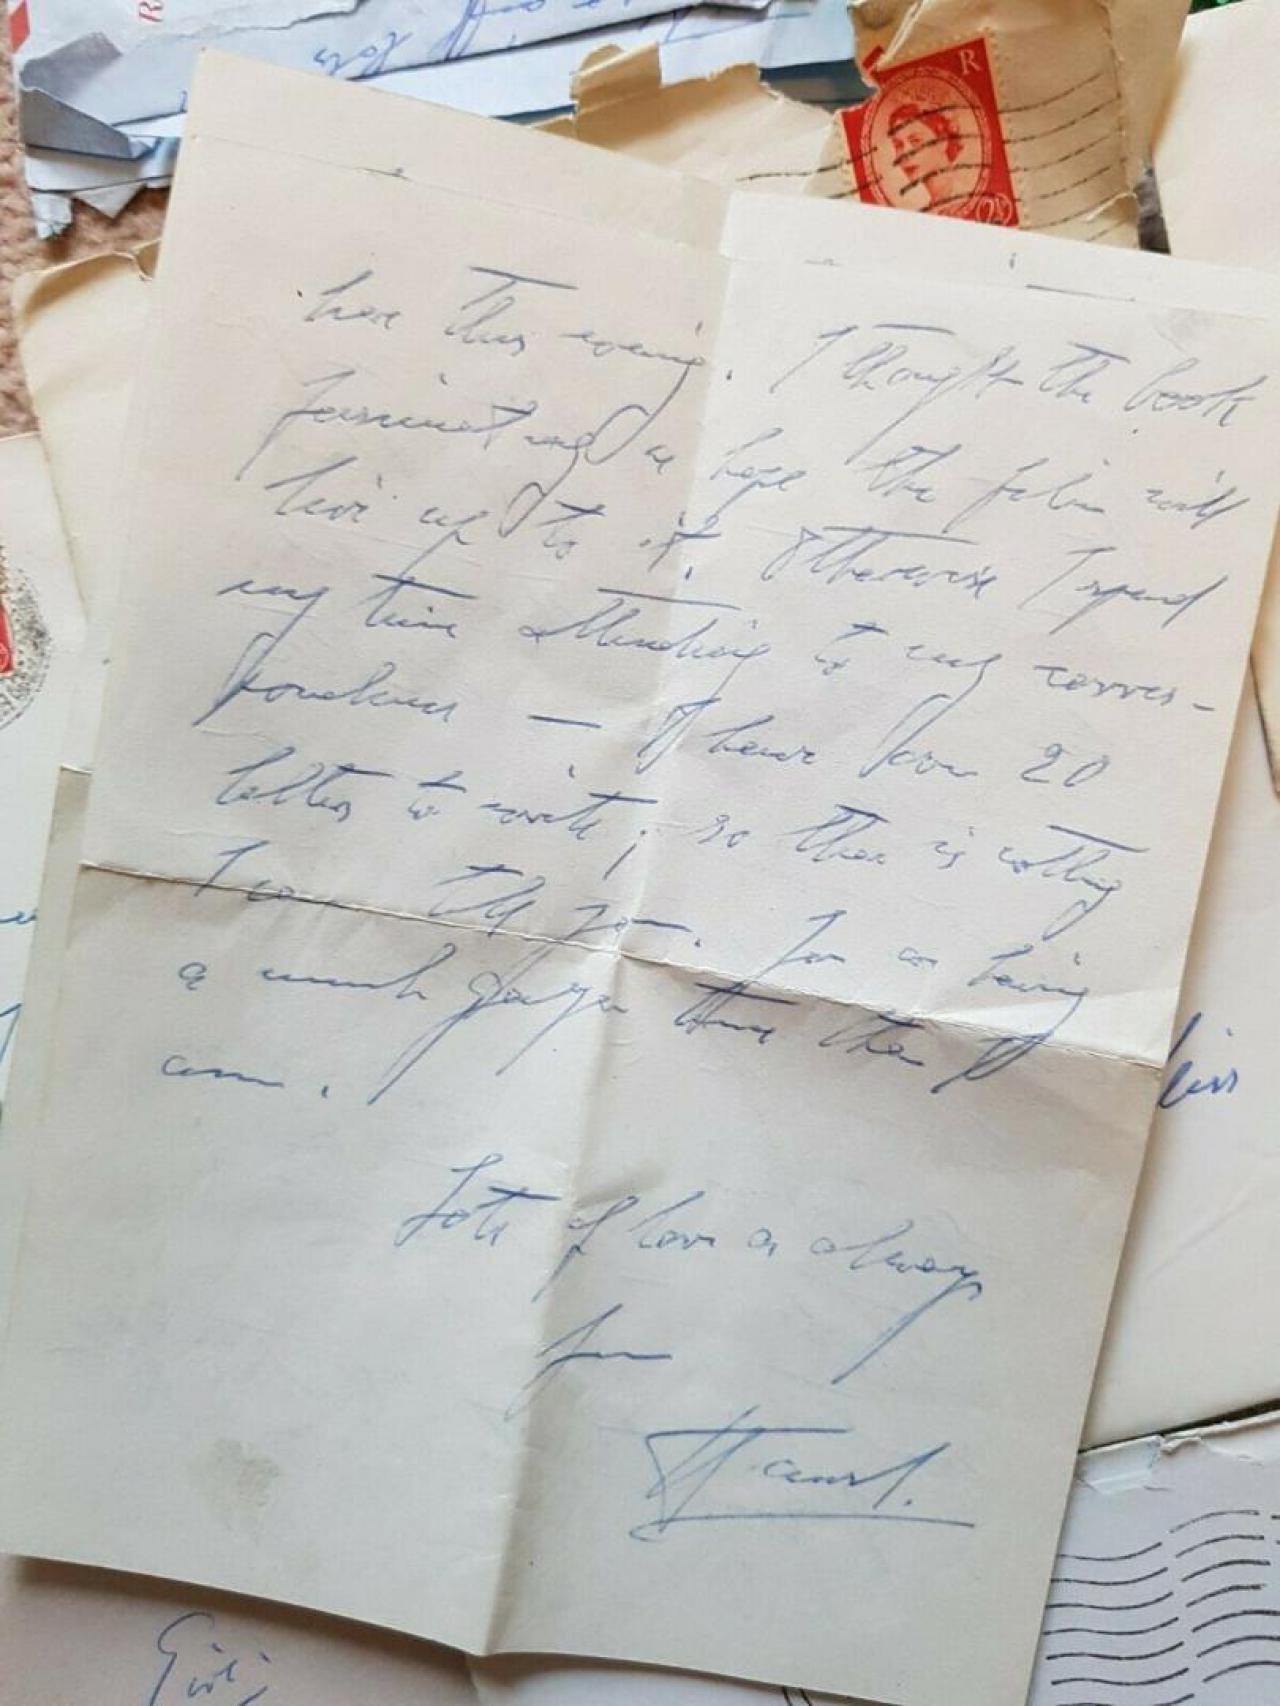 here this evening. I thought the book
fascinating & hope the film will
live up to it. Otherwise I spend
my time attending to my corres-
pondence — I have some 20
letters to write; so there is nothing
I can tell you. You are having
a much gayer time than I
am.
Lots of love as always
from
R
Girl